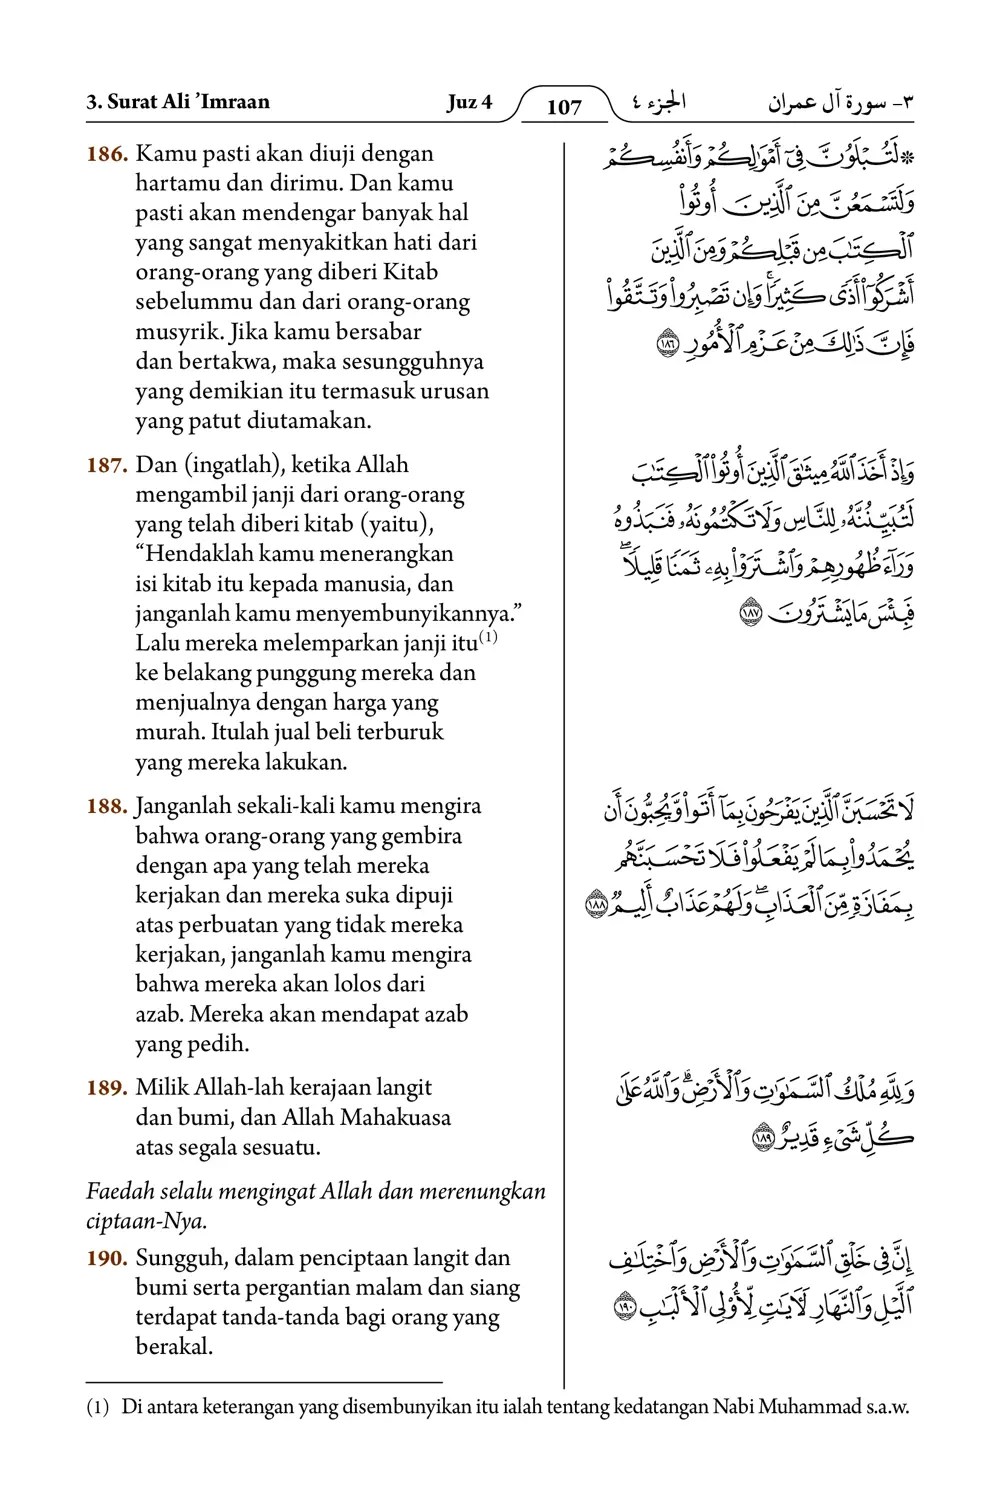 3. Surat Ali ’Imraan
Juz 4
107
الجزء ٤
٣- سورة آل عمران
186. Kamu pasti akan diuji dengan
hartamu dan dirimu. Dan kamu
pasti akan mendengar banyak hal
yang sangat menyakitkan hati dari
orang-orang yang diberi Kitab
sebelummu dan dari orang-orang
musyrik. Jika kamu bersabar
dan bertakwa, maka sesungguhnya
yang demikian itu termasuk urusan
yang patut diutamakan.
187. Dan (ingatlah), ketika Allah
mengambil janji dari orang-orang
yang telah diberi kitab (yaitu),
“Hendaklah kamu menerangkan
isi kitab itu kepada manusia, dan
janganlah kamu menyembunyikannya.”
Lalu mereka melemparkan janji itu(1)
ke belakang punggung mereka dan
menjualnya dengan harga yang
murah. Itulah jual beli terburuk
yang mereka lakukan.
188. Janganlah sekali-kali kamu mengira
bahwa orang-orang yang gembira
dengan apa yang telah mereka
kerjakan dan mereka suka dipuji
atas perbuatan yang tidak mereka
kerjakan, janganlah kamu mengira
bahwa mereka akan lolos dari
azab. Mereka akan mendapat azab
yang pedih.
189. Milik Allah-lah kerajaan langit
dan bumi, dan Allah Mahakuasa
atas segala sesuatu.
Faedah selalu mengingat Allah dan merenungkan
ciptaan-Nya.
190. Sungguh, dalam penciptaan langit dan
bumi serta pergantian malam dan siang
terdapat tanda-tanda bagi orang yang
berakal.
۞ لَتُبْلَوُنَّ فِىٓ أَمْوَٰلِكُمْ وَأَنفُسِكُمْ
وَلَتَسْمَعُنَّ مِنَ ٱلَّذِينَ أُوتُوا۟
ٱلْكِتَٰبَ مِن قَبْلِكُمْ وَمِنَ ٱلَّذِينَ
أَشْرَكُوٓا۟ أَذًى كَثِيرًا ۚ وَإِن تَصْبِرُوا۟ وَتَتَّقُوا۟
فَإِنَّ ذَٰلِكَ مِنْ عَزْمِ ٱلْأُمُورِ ١٨٦
وَإِذْ أَخَذَ ٱللَّهُ مِيثَٰقَ ٱلَّذِينَ أُوتُوا۟ ٱلْكِتَٰبَ
لَتُبَيِّنُنَّهُۥ لِلنَّاسِ وَلَا تَكْتُمُونَهُۥ فَنَبَذُوهُ
وَرَآءَ ظُهُورِهِمْ وَٱشْتَرَوْا۟ بِهِۦ ثَمَنًا قَلِيلًا ۖ
فَبِئْسَ مَا يَشْتَرُونَ ١٨٧
لَا تَحْسَبَنَّ ٱلَّذِينَ يَفْرَحُونَ بِمَآ أَتَوا۟ وَّيُحِبُّونَ أَن
يُحْمَدُوا۟ بِمَا لَمْ يَفْعَلُوا۟ فَلَا تَحْسَبَنَّهُم
بِمَفَازَةٍ مِّنَ ٱلْعَذَابِ ۖ وَلَهُمْ عَذَابٌ أَلِيمٌ ١٨٨
وَلِلَّهِ مُلْكُ ٱلسَّمَٰوَٰتِ وَٱلْأَرْضِ ۗ وَٱللَّهُ عَلَىٰ
كُلِّ شَىْءٍ قَدِيرٌ ١٨٩
إِنَّ فِى خَلْقِ ٱلسَّمَٰوَٰتِ وَٱلْأَرْضِ وَٱخْتِلَٰفِ
ٱلَّيْلِ وَٱلنَّهَارِ لَـَٔايَٰتٍ لِّأُو۟لِى ٱلْأَلْبَٰبِ ١٩٠
(1) Di antara keterangan yang disembunyikan itu ialah tentang kedatangan Nabi Muhammad s.a.w.